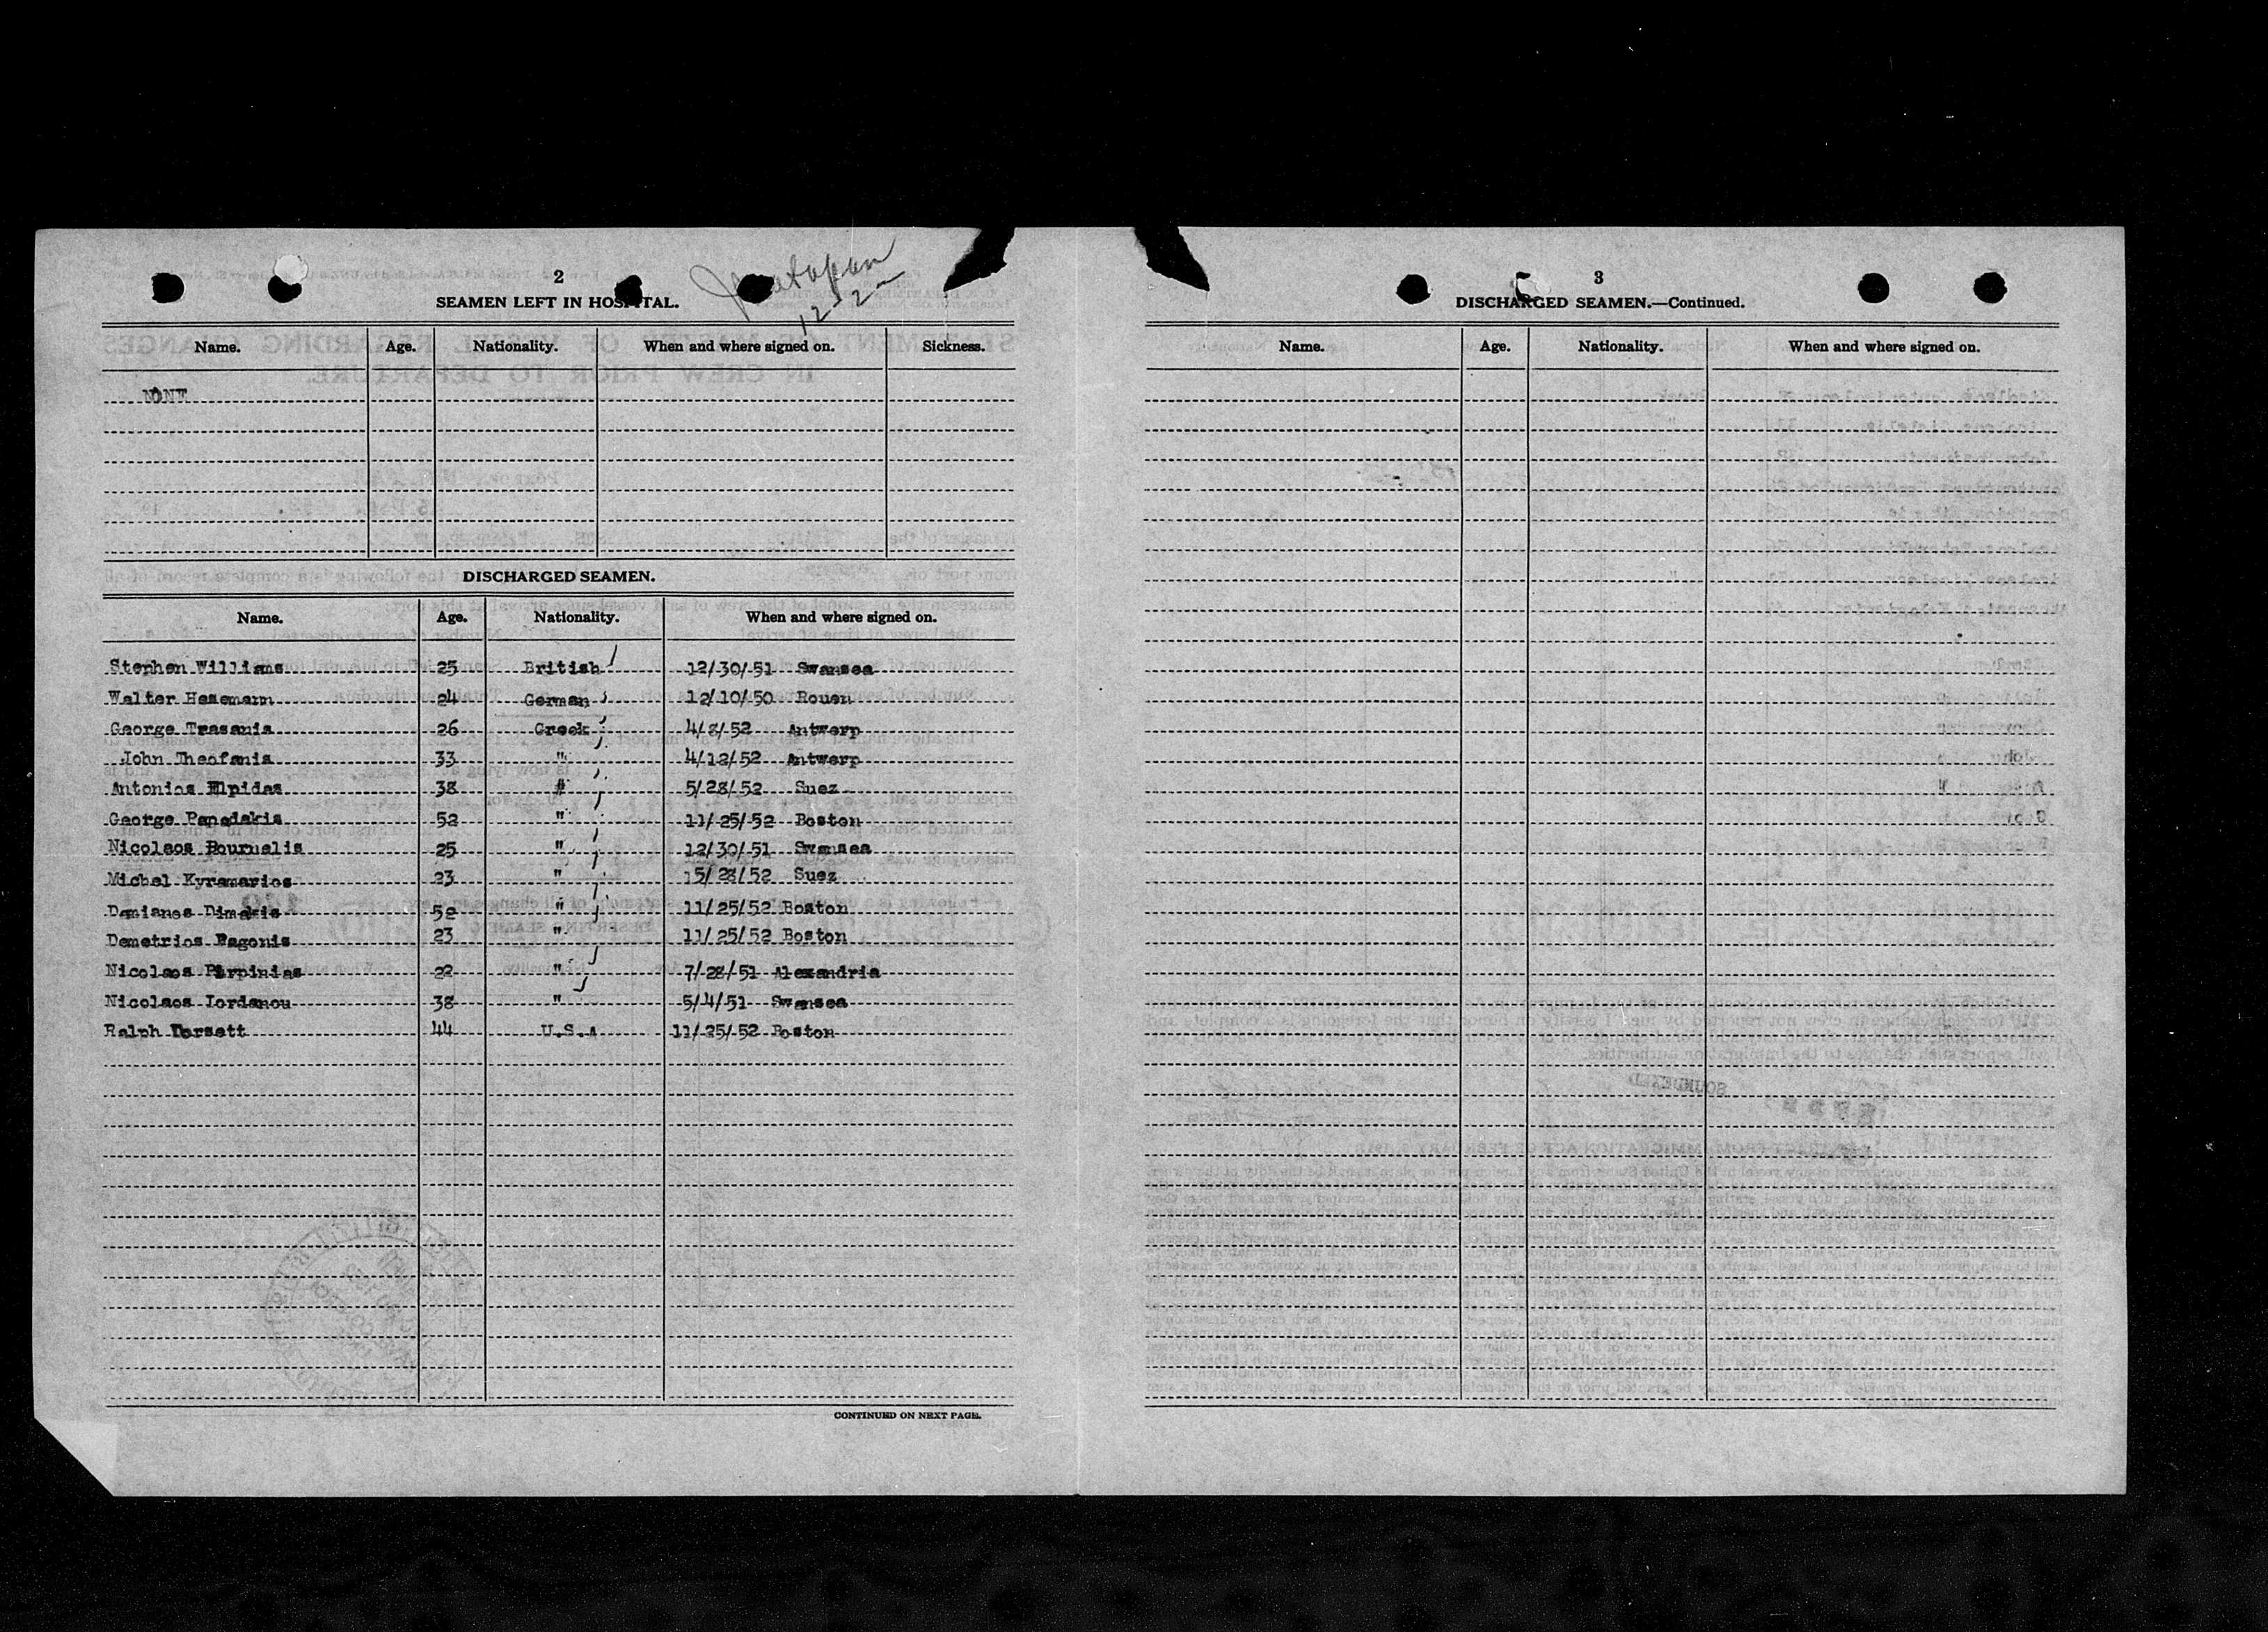 2
SEAMEN LEFT IN HOSPITAL.
12-2
Name. Age. Nationality. When and where signed on. Sickness.
NONE
DISCHARGED SEAMEN.
Name. Age. Nationality. When and where signed on.
Stephen Williams 25 British 12/30/51 Swansea
Walter Hesemann 24 German 12/10/50 Rouen
George Trasania 26 Greek 4/8/52 Antwerp
John Theofania 33 " 4/12/52 Antwerp
Antonios Elpidas 38 " 5/28/52 Suez
George Papadakis 52 " 11/25/52 Boston
Nicolaos Bournelis 25 " 12/30/51 Swansea
Michel Kyramarios 23 " 5/28/52 Suez
Damianos Dimakis 52 " 11/25/52 Boston
Demetrios Pagonis 23 " 11/25/52 Boston
Nicolaos Pirpinias 22 " 7/28/51 Alexandria
Nicolaos Iordanou 38 " 5/4/51 Swansea
Ralph Dorsett 44 U.S.A 11/25/52 Boston
CONTINUED ON NEXT PAGE.
3
DISCHARGED SEAMEN.—Continued.
Name. Age. Nationality. When and where signed on.